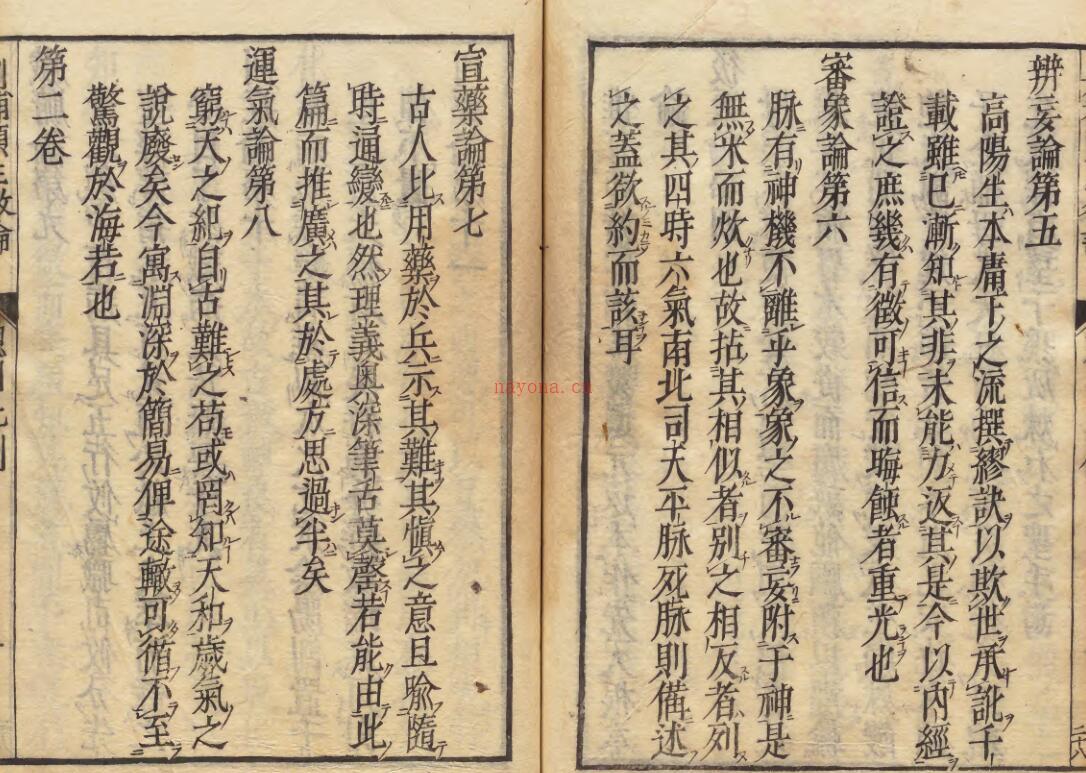 辨妄論第五
高陽生本庸下之流撰繆訣以欺世承訛千
載雖已漸知其非未能力返其是今以內經
證之庶幾有徵可信而晦蝕者重光也
審象論第六
脉有神機不離乎象象之不審妄附于神是
無米而炊也故拈其相似者別之相反者列
之其四時六氣南北司天平脉死脉則備述
之蓋欲約而該耳
宣藥論第七
古人比用藥於兵示其難其慎之意且喻隨
時通變也然理義奧深筆舌莫罄若能由此
篇而推廣之其於處方思過半矣
運氣論第八
窮天之紀自古難之苟或罔知天和歲氣之
說廢矣今寓淵深於簡易俾途轍可循不至
驚觀於海若也
第二卷
nayona.cn